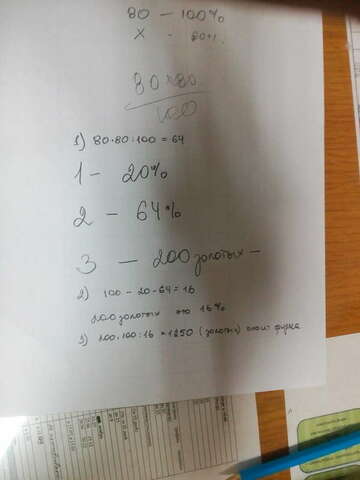 80 — 100%
x -
80×80
100
1) 80·80:100=64
1 - 20%
2 - 64%
3 — 200 золотых -
2) 100-20-64=16
200 золотых это 16%
3) 200·100:16=1250 (золотых) стоит фирма